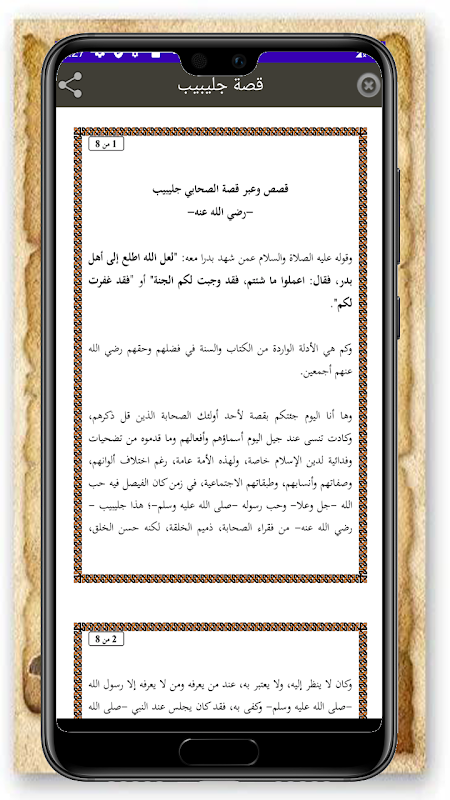 قصة جليبيب
1 من 8
قصص وعبر قصة الصحابي جليبيب
-رضي الله عنه-
وقوله عليه الصلاة والسلام عمن شهد بدرا معه: "لعل الله اطلع إلى أهل
بدر، فقال: اعملوا ما شئتم، فقد وجبت لكم الجنة" أو "فقد غفرت
لكم".
وكم هي الأدلة الواردة من الكتاب والسنة في فضلهم وحقهم رضي الله
عنهم أجمعين.
وها أنا اليوم جئتكم بقصة لأحد أولئك الصحابة الذين قل ذكرهم،
وكادت تنسى عند جيل اليوم أسماؤهم وأفعالهم وما قدموه من تضحيات
وفدائية لدين الإسلام خاصة، ولهذه الأمة عامة، رغم اختلاف ألوانهم،
وصفاتهم وأنسابهم، وطبقاتهم الاجتماعية، في زمن كان الفيصل فيه حب
الله -جل وعلا- وحب رسوله -صلى الله عليه وسلم-؛ هذا جليبيب -
رضي الله عنه- من فقراء الصحابة، ذميم الخلقة، لكنه حسن الخلق،
2 من 8
وكان لا ينظر إليه، ولا يعتبر به، عند من يعرفه ومن لا يعرفه إلا رسول الله
-صلى الله عليه وسلم- وكفى به، فقد كان يجلس عند النبي -صلى الله